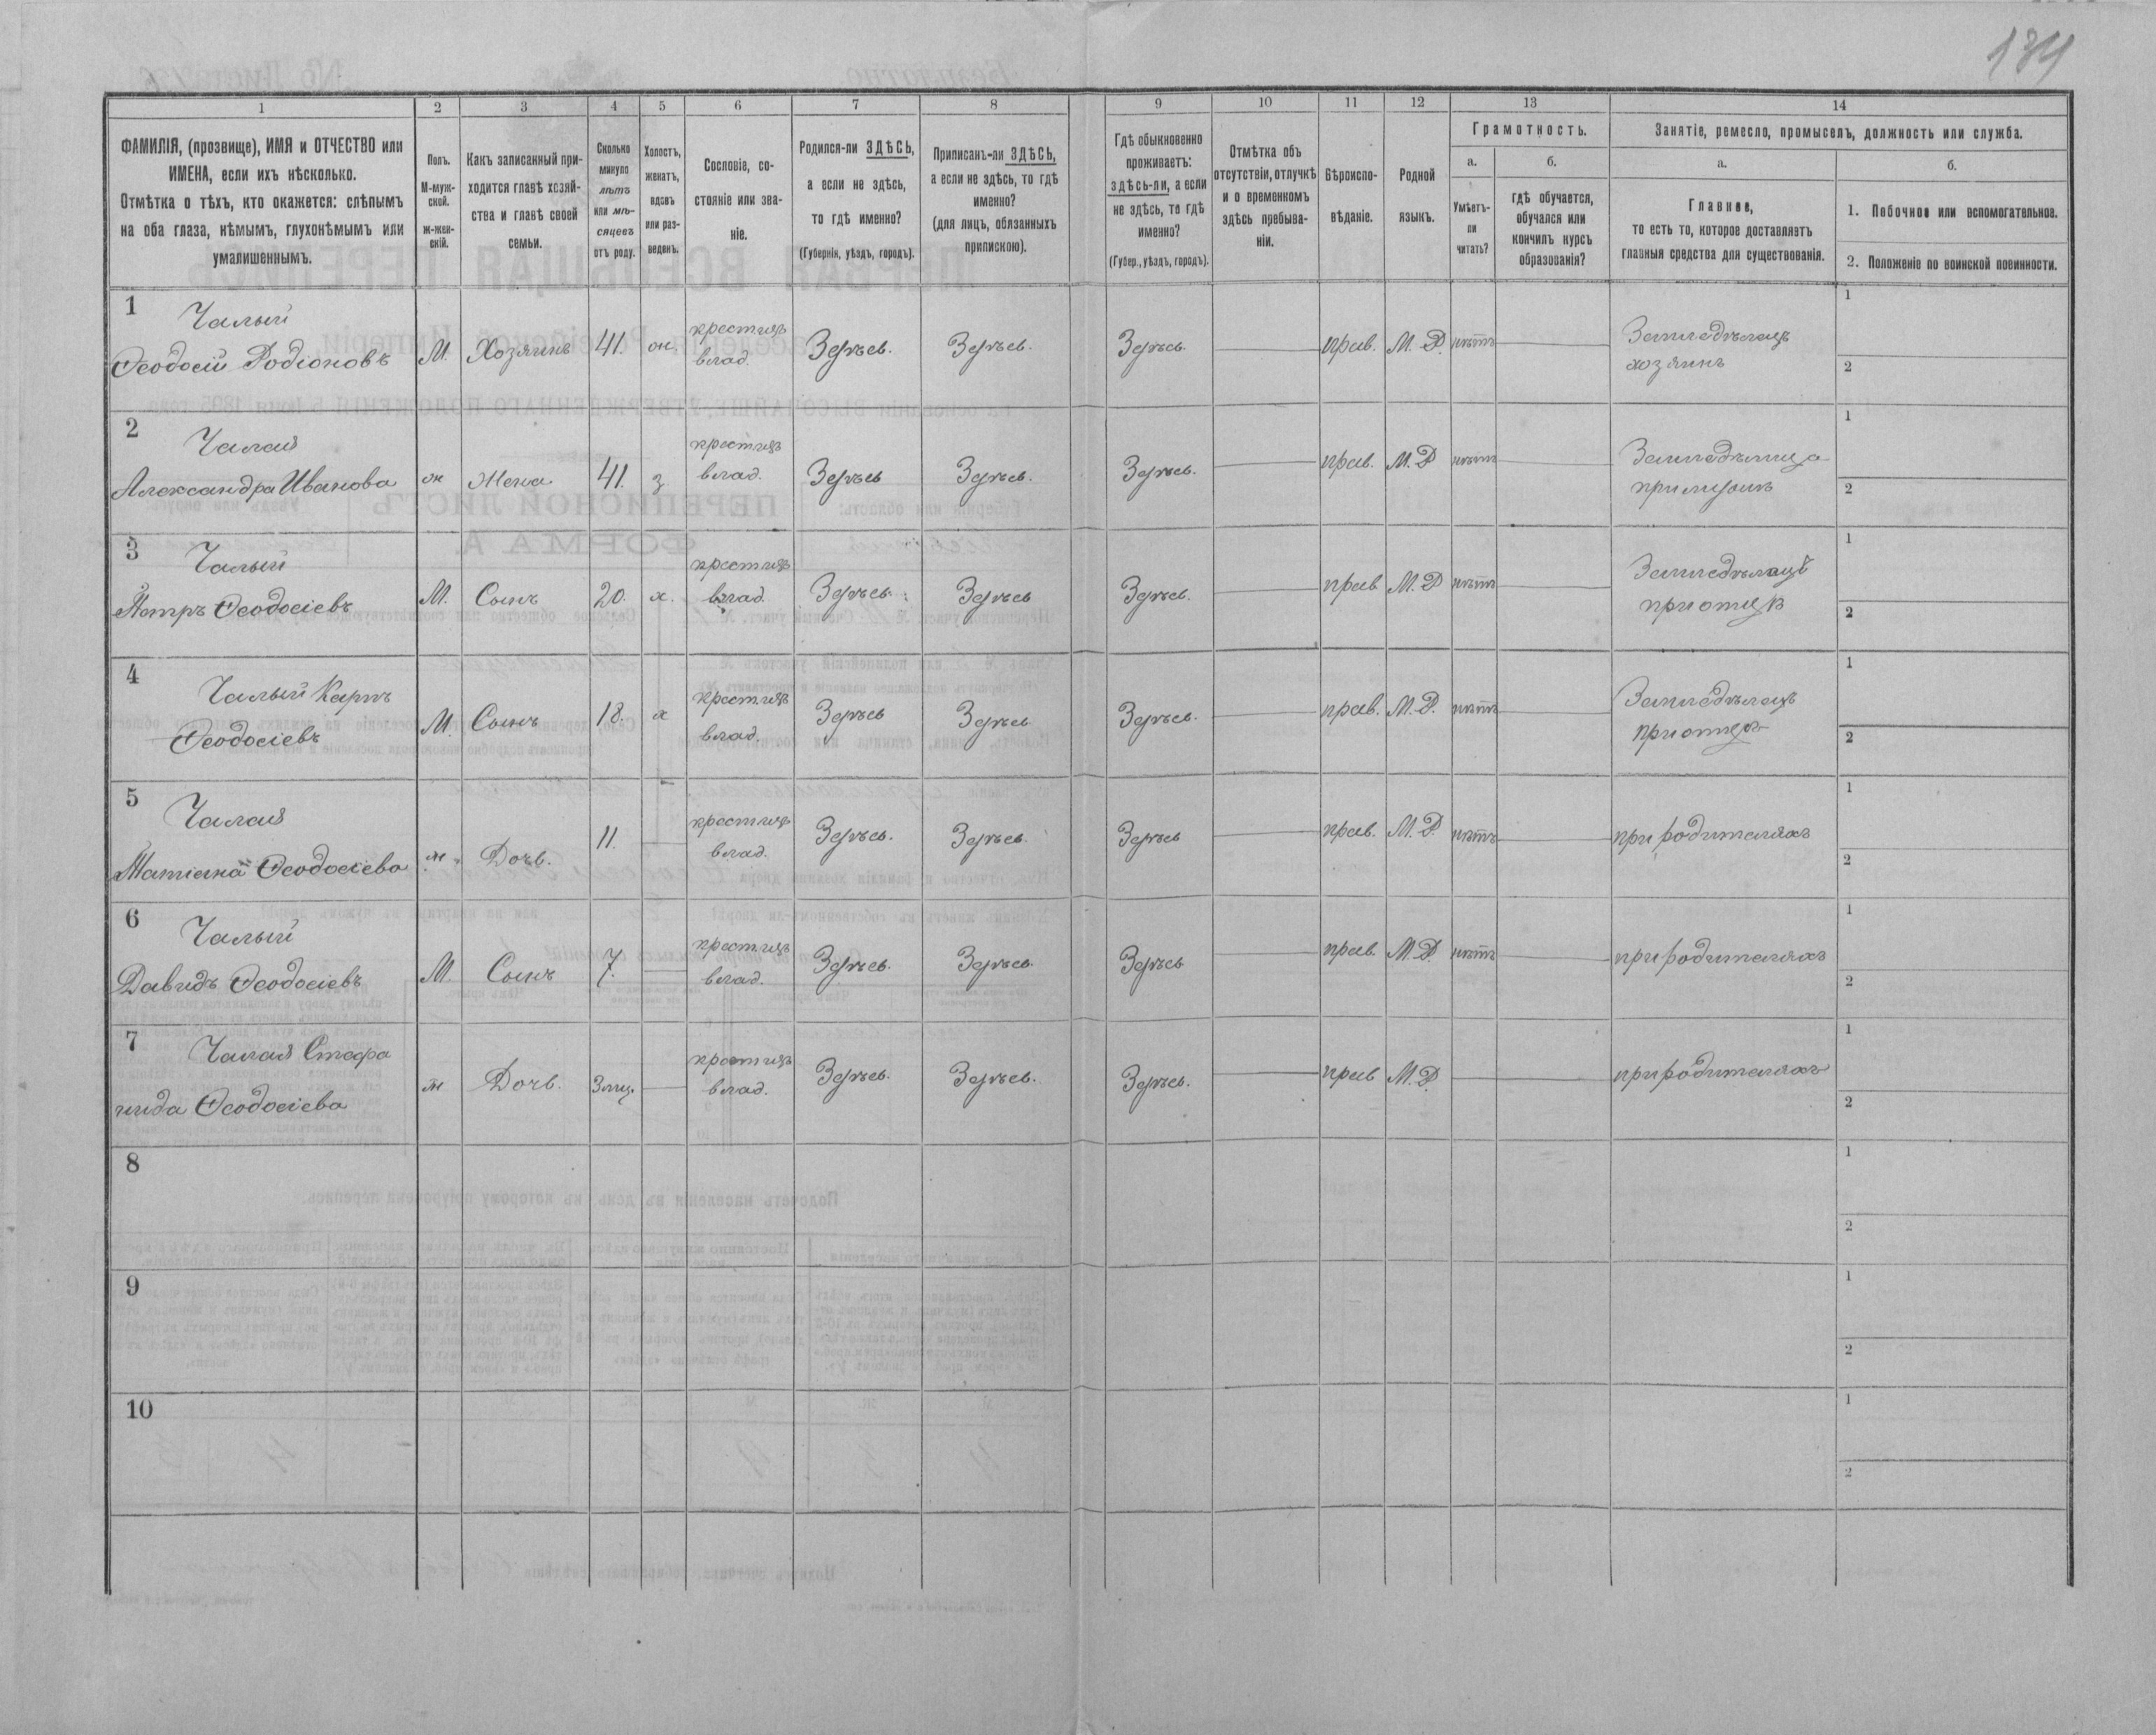 134
1 2 3 4 5 6 7 8 9 10 11 12 13 14
ФАМИЛІЯ, (прозвище), ИМЯ и ОТЧЕСТВО или
ИМЕНА, если ихъ нѣсколько.
Отмѣтка о тѣхъ, кто окажется: слѣпымъ
на оба глаза, нѣмымъ, глухонѣмымъ или
умалишеннымъ.
Полъ.
М-муж-
ской.
ж-жен-
скій.
Какъ записанный при-
ходится главѣ хозяй-
ства и главѣ своей
семьи.
Сколько
минуло
лѣтъ
или мѣ-
сяцевъ
отъ роду.
Холостъ,
женатъ,
вдовъ
или раз-
веденъ.
Сословіе, со-
стояніе или зва-
ніе.
Родился-ли ЗДѢСЬ,
а если не здѣсь,
то гдѣ именно?
(Губернія, уѣздъ, городъ).
Приписанъ-ли ЗДѢСЬ,
а если не здѣсь, то гдѣ
именно?
(для лицъ, обязанныхъ
припискою).
Гдѣ обыкновенно
проживаетъ:
здѣсь-ли, а если
не здѣсь, то гдѣ
именно?
(Губер., уѣздъ, городъ).
Отмѣтка объ
отсутствіи, отлучкѣ
и о временномъ
здѣсь пребыва-
ніи.
Вѣроиспо-
вѣданіе.
Родной
языкъ.
Грамотность.
а.
Умѣетъ-
ли
читать?
б.
гдѣ обучается,
обучался или
кончилъ курсъ
образованія?
Занятіе, ремесло, промыселъ, должность или служба.
а.
Главное,
то есть то, которое доставляетъ
главныя средства для существованія.
б.
1. Побочное или вспомогательное.
2. Положеніе по воинской повинности.
1 Чалый
Ѳеодосій Родіоновъ М. Хозяинъ 41. ж. крест. изъ влад. Здѣсь. Здѣсь. Здѣсь. прав. М. Р. нѣтъ Земледѣлецъ
хозяинъ
1
2
2 Чалая
Александра Иванова ж Жена 41. з крест. изъ влад. Здѣсь Здѣсь. Здѣсь. прав. М. Р нѣтъ Земледѣлица
при мужѣ
1
2
3 Чалый
Петръ Ѳеодосіевъ М. Сынъ 20. х. крест. изъ влад. Здѣсь. Здѣсь Здѣсь. прав М. Р нѣтъ Земледѣлецъ
при отцѣ
1
2
4 Чалый Карпъ
Ѳеодосіевъ М. Сынъ 18. х крест. изъ влад. Здѣсь Здѣсь Здѣсь. прав. М. Р. нѣтъ Земледѣлецъ
при отцѣ
1
2
5 Чалая
Татіана Ѳеодосіева ж. Дочь. 11. крест. изъ влад. Здѣсь. Здѣсь. Здѣсь прав. М. Р. нѣтъ при родителяхъ
1
2
6 Чалый
Давидъ Ѳеодосіевъ М. Сынъ 7. крест. изъ влад. Здѣсь. Здѣсь. Здѣсь прав. М. Р. нѣтъ при родителяхъ
1
2
7 Чалая Стефа
нида Ѳеодосіева ж Дочь. 3 мц. крест. изъ влад. Здѣсь. Здѣсь. Здѣсь. прав М. Р. при родителяхъ
1
2
8
1
2
9
1
2
10
1
2